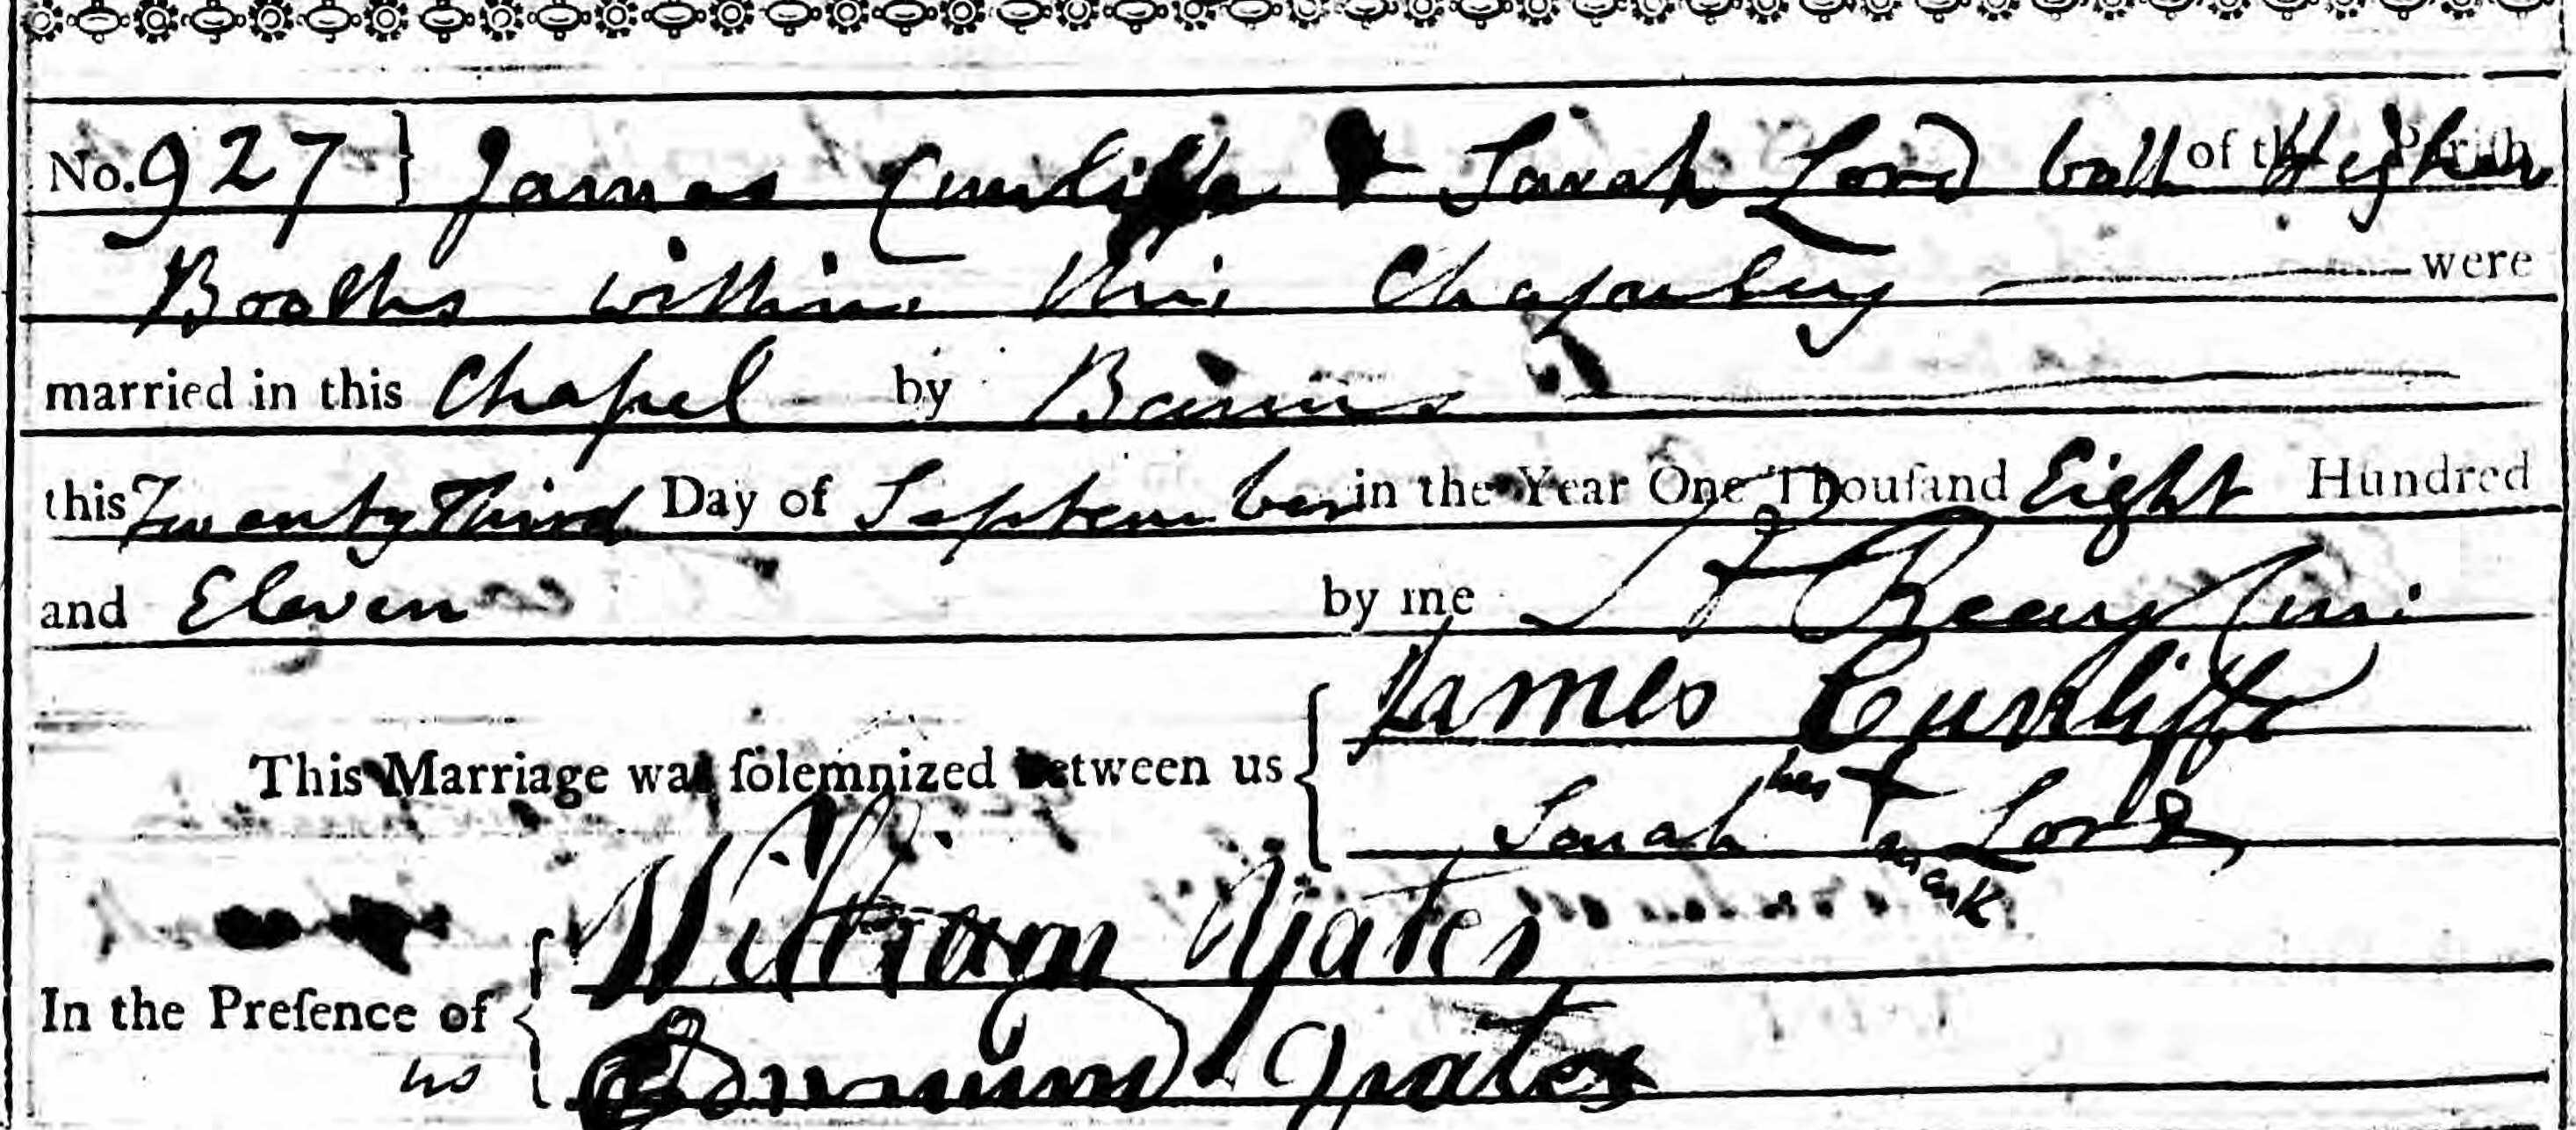 No. 927 } James Cunliffe & Sarah Lord both of the Higher
Booths within this Chapelry were
married in this Chapel by Banns
this Twenty Third Day of September in the Year One Thouſand Eight Hundred
and Eleven by me
James Cunliffe
This Marriage was ſolemnized between us
Sarah her + mark Lord
William Yates
In the Preſence of us
Edmund Yates